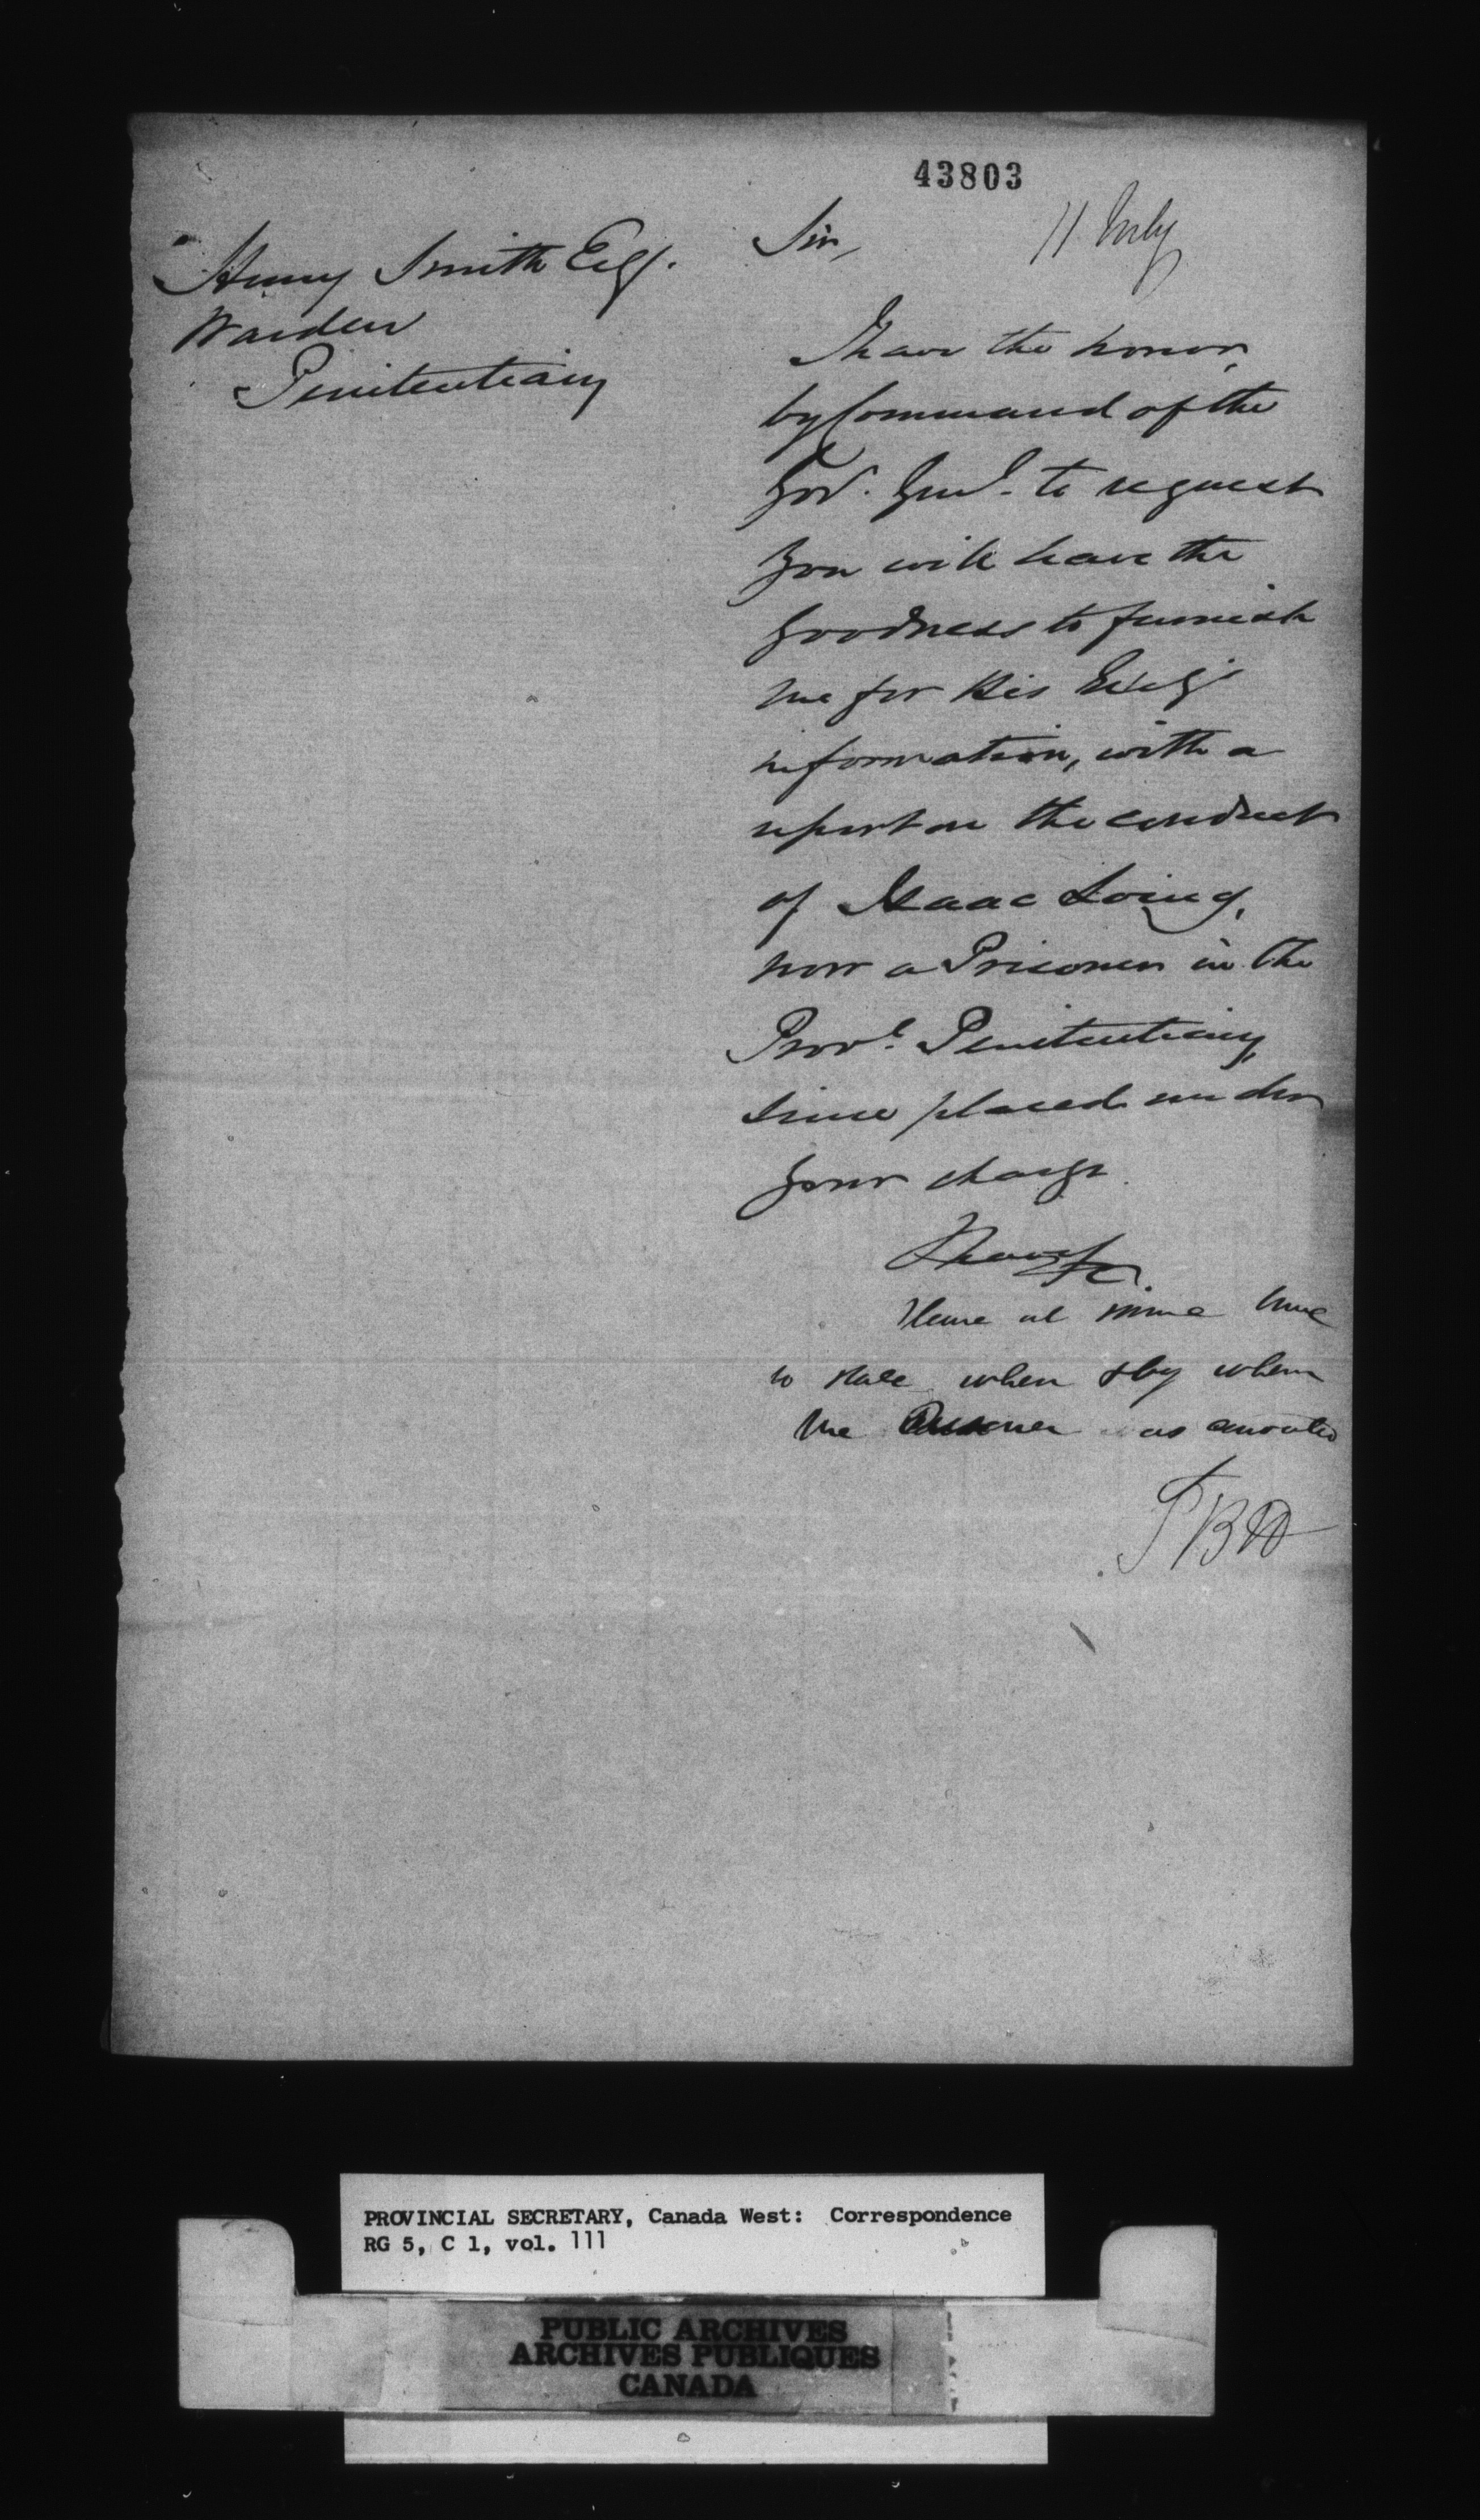 43803
Henry Smith Esq.
Warden
Penitentiary
Sir,
11 July
I have the honor,
by Command of the
Gov. Genl. to request
you will have the
goodness to furnish
me for His Excy's
information, with a
report on the conduct
of Isaac Loing,
now a Prisoner in the
Provl. Penitentiary,
since placed under
your charge
I have &c.
Please at same time
to state when & by whom
the Prisoner was
TBH
PROVINCIAL SECRETARY, Canada West: Correspondence
RG 5, C 1, vol. 111
PUBLIC ARCHIVES
ARCHIVES PUBLIQUES
CANADA